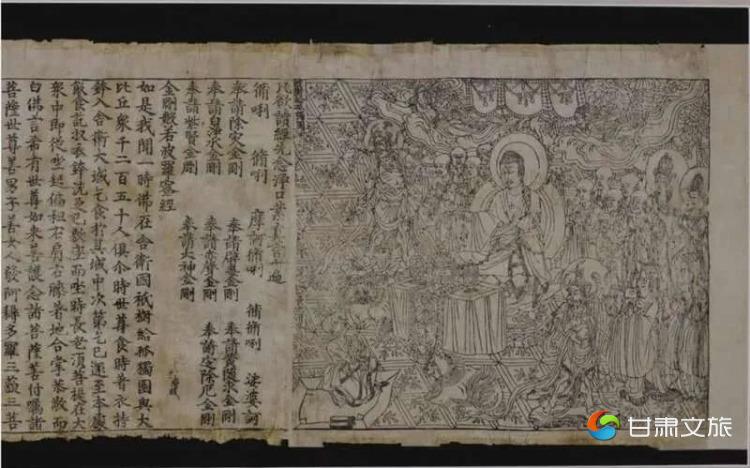 凡欲讀經先念淨口業真言一遍
脩唎 脩唎 摩訶脩唎 脩脩唎 娑婆訶
奉請除災金剛 奉請辟毒金剛 奉請黃隨求金剛
奉請白淨水金剛 奉請赤聲金剛 奉請定除厄金剛
奉請紫賢金剛 奉請大神金剛
金剛般若波羅蜜經
如是我聞一時佛在舍衛國祇樹給孤獨園與大
比丘衆千二百五十人俱尒時世尊食時著衣持
鉢入舍衛大城乞食於其城中次第乞已還至本處
飯食訖收衣鉢洗足已敷座而坐時長老須菩提在大
衆中即從座起偏袒右肩右膝著地合掌恭敬而
白佛言希有世尊如來善護念諸菩薩善付囑諸
菩薩世尊善男子善女人發阿耨多羅三藐三菩
甘肃文旅